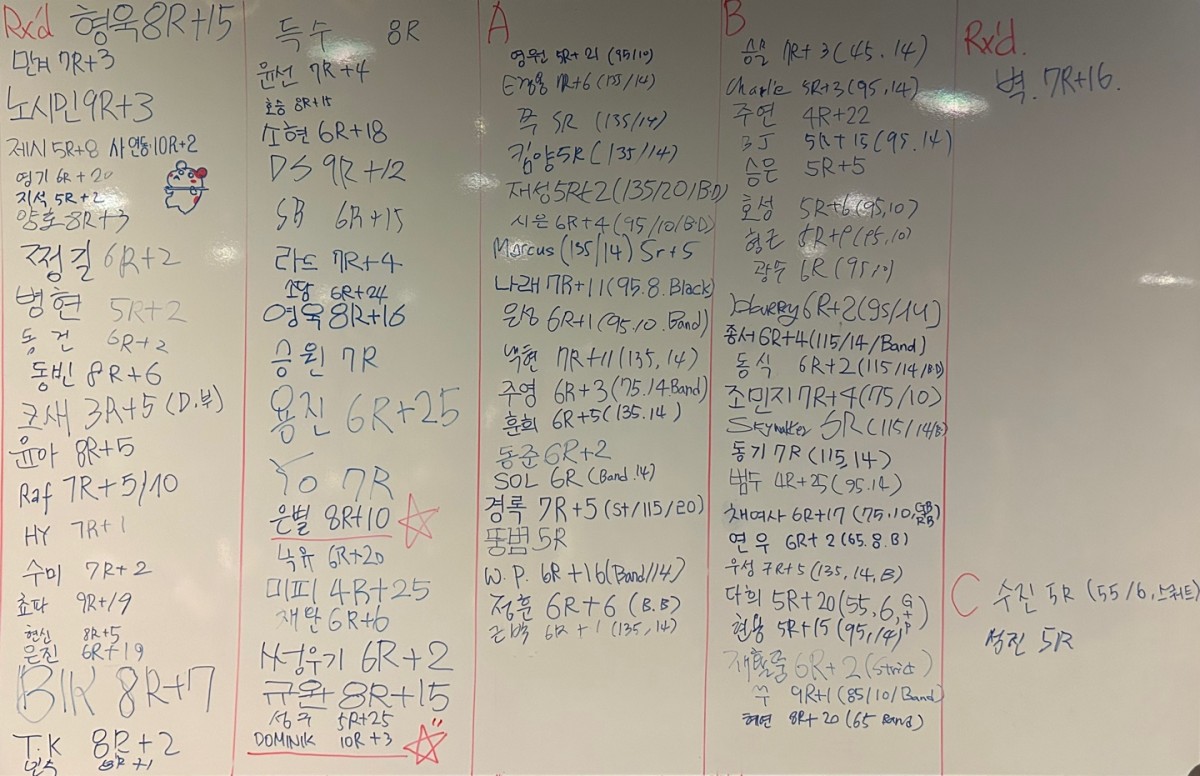 Rx'd 형욱 8R+15
민겨 7R+3
노시민 9R+3
제시 5R+8 사연동 10R+2
영기 6R+20
지석 5R+2
양호 8R+3
쩡길 6R+2
병현 5R+2
동건 6R+2
동빈 8R+6
코새 3R+5 (D.부)
윤아 8R+5
Raf 7R+5/10
HY 7R+1
수미 7R+2
쵸파 9R+19
현신 8R+5
은진 6R+19
BIK 8R+7
T.K 8R+2
8R+1
득수 8R
윤선 7R+4
호승 8R+15
소현 6R+18
DS 9R+12
SB 6R+15
라드 7R+4
소담 6R+24
영욱 8R+16
승원 7R
용진 6R+25
Yo 7R
은별 8R+10
녹유 6R+20
미피 4R+25
재탄 6R+6
서성우기 6R+2
규완 8R+15
성주 5R+25
DOMINIK 10R+3
A
영원 5R+21 (95/10)
7R+6 (135/14)
쪽 5R (135/14)
킴양 5R (135/14)
재성 5R+2 (135/20/B.D)
시은 6R+4 (95/10/B.D)
Marcus (135/14) 5r+5
나래 7R+11 (95.8.Black)
은성 6R+1 (95.10.Band)
넉현 7R+11 (135,14)
주영 6R+3 (75.14.Band)
훈회 6R+5 (135.14)
동준 6R+2
SOL 6R (Band.14)
경록 7R+5 (St/115/20)
뚱범 5R
W.P. 6R+16 (Band/14)
정훈 6R+6 (B.B)
근백 6R+1 (135,14)
B
승모 7R+3 (45.14)
Charlie 5R+3 (95,14)
주연 4R+22
BJ 5R+15 (95.14)
승은 5R+5
호성 5R+6 (95,10)
형근 5R+9 (95,10)
광수 6R (95,10)
Harry 6R+2 (95/14)
종서 6R+4 (115/14/Band)
동식 6R+2 (115/14/B.D)
조민지 7R+4 (75/10)
Skywalker 5R (115/14/B)
동기 7R (115,14)
범수 4R+25 (95.14)
채여사 6R+17 (75.10, GB RB)
연우 6R+2 (65.8.B)
우성 7R+5 (135,14,B)
다희 5R+20 (55,6,
련용 5R+15 (95,14)
6R+2 (Strict)
쑤 9R+1 (85/10/Band)
혀연 8R+20 (65 Band)
Rx'd.
벽. 7R+16.
C 수진 5R (55/6,스쿼트)
석진 5R